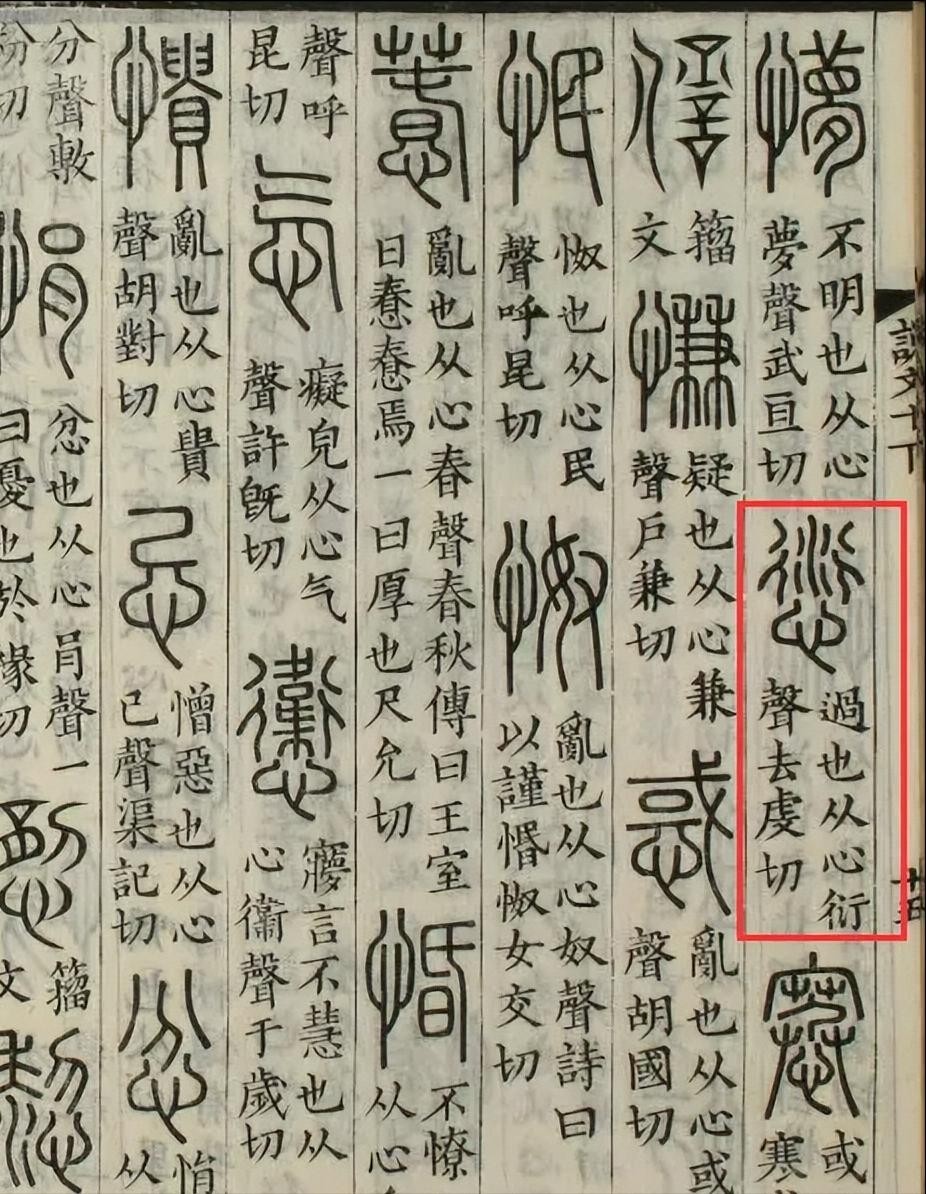 說文十下 十五
懜 不明也从心夢聲武亘切 愆 過也从心衍聲去虔切 或寒
籀文 慊 疑也从心兼聲戶兼切 惑 亂也从心或聲胡國切
怋 怓也从心民聲呼昆切 怓 亂也从心奴聲詩曰以謹惽怓女交切
惷 亂也从心春聲春秋傳曰王室曰惷惷焉一曰厚也尺允切 惛 不憭从心
聲呼昆切 忥 癡皃从心气聲許旣切 𢥞 寱言不慧也从心衞聲于歲切
憒 亂也从心貴聲胡對切 忌 憎惡也从心己聲渠記切 忿 悁从
分聲敷粉切 悁 忿也从心肙聲一曰憂也於緣切 籀文